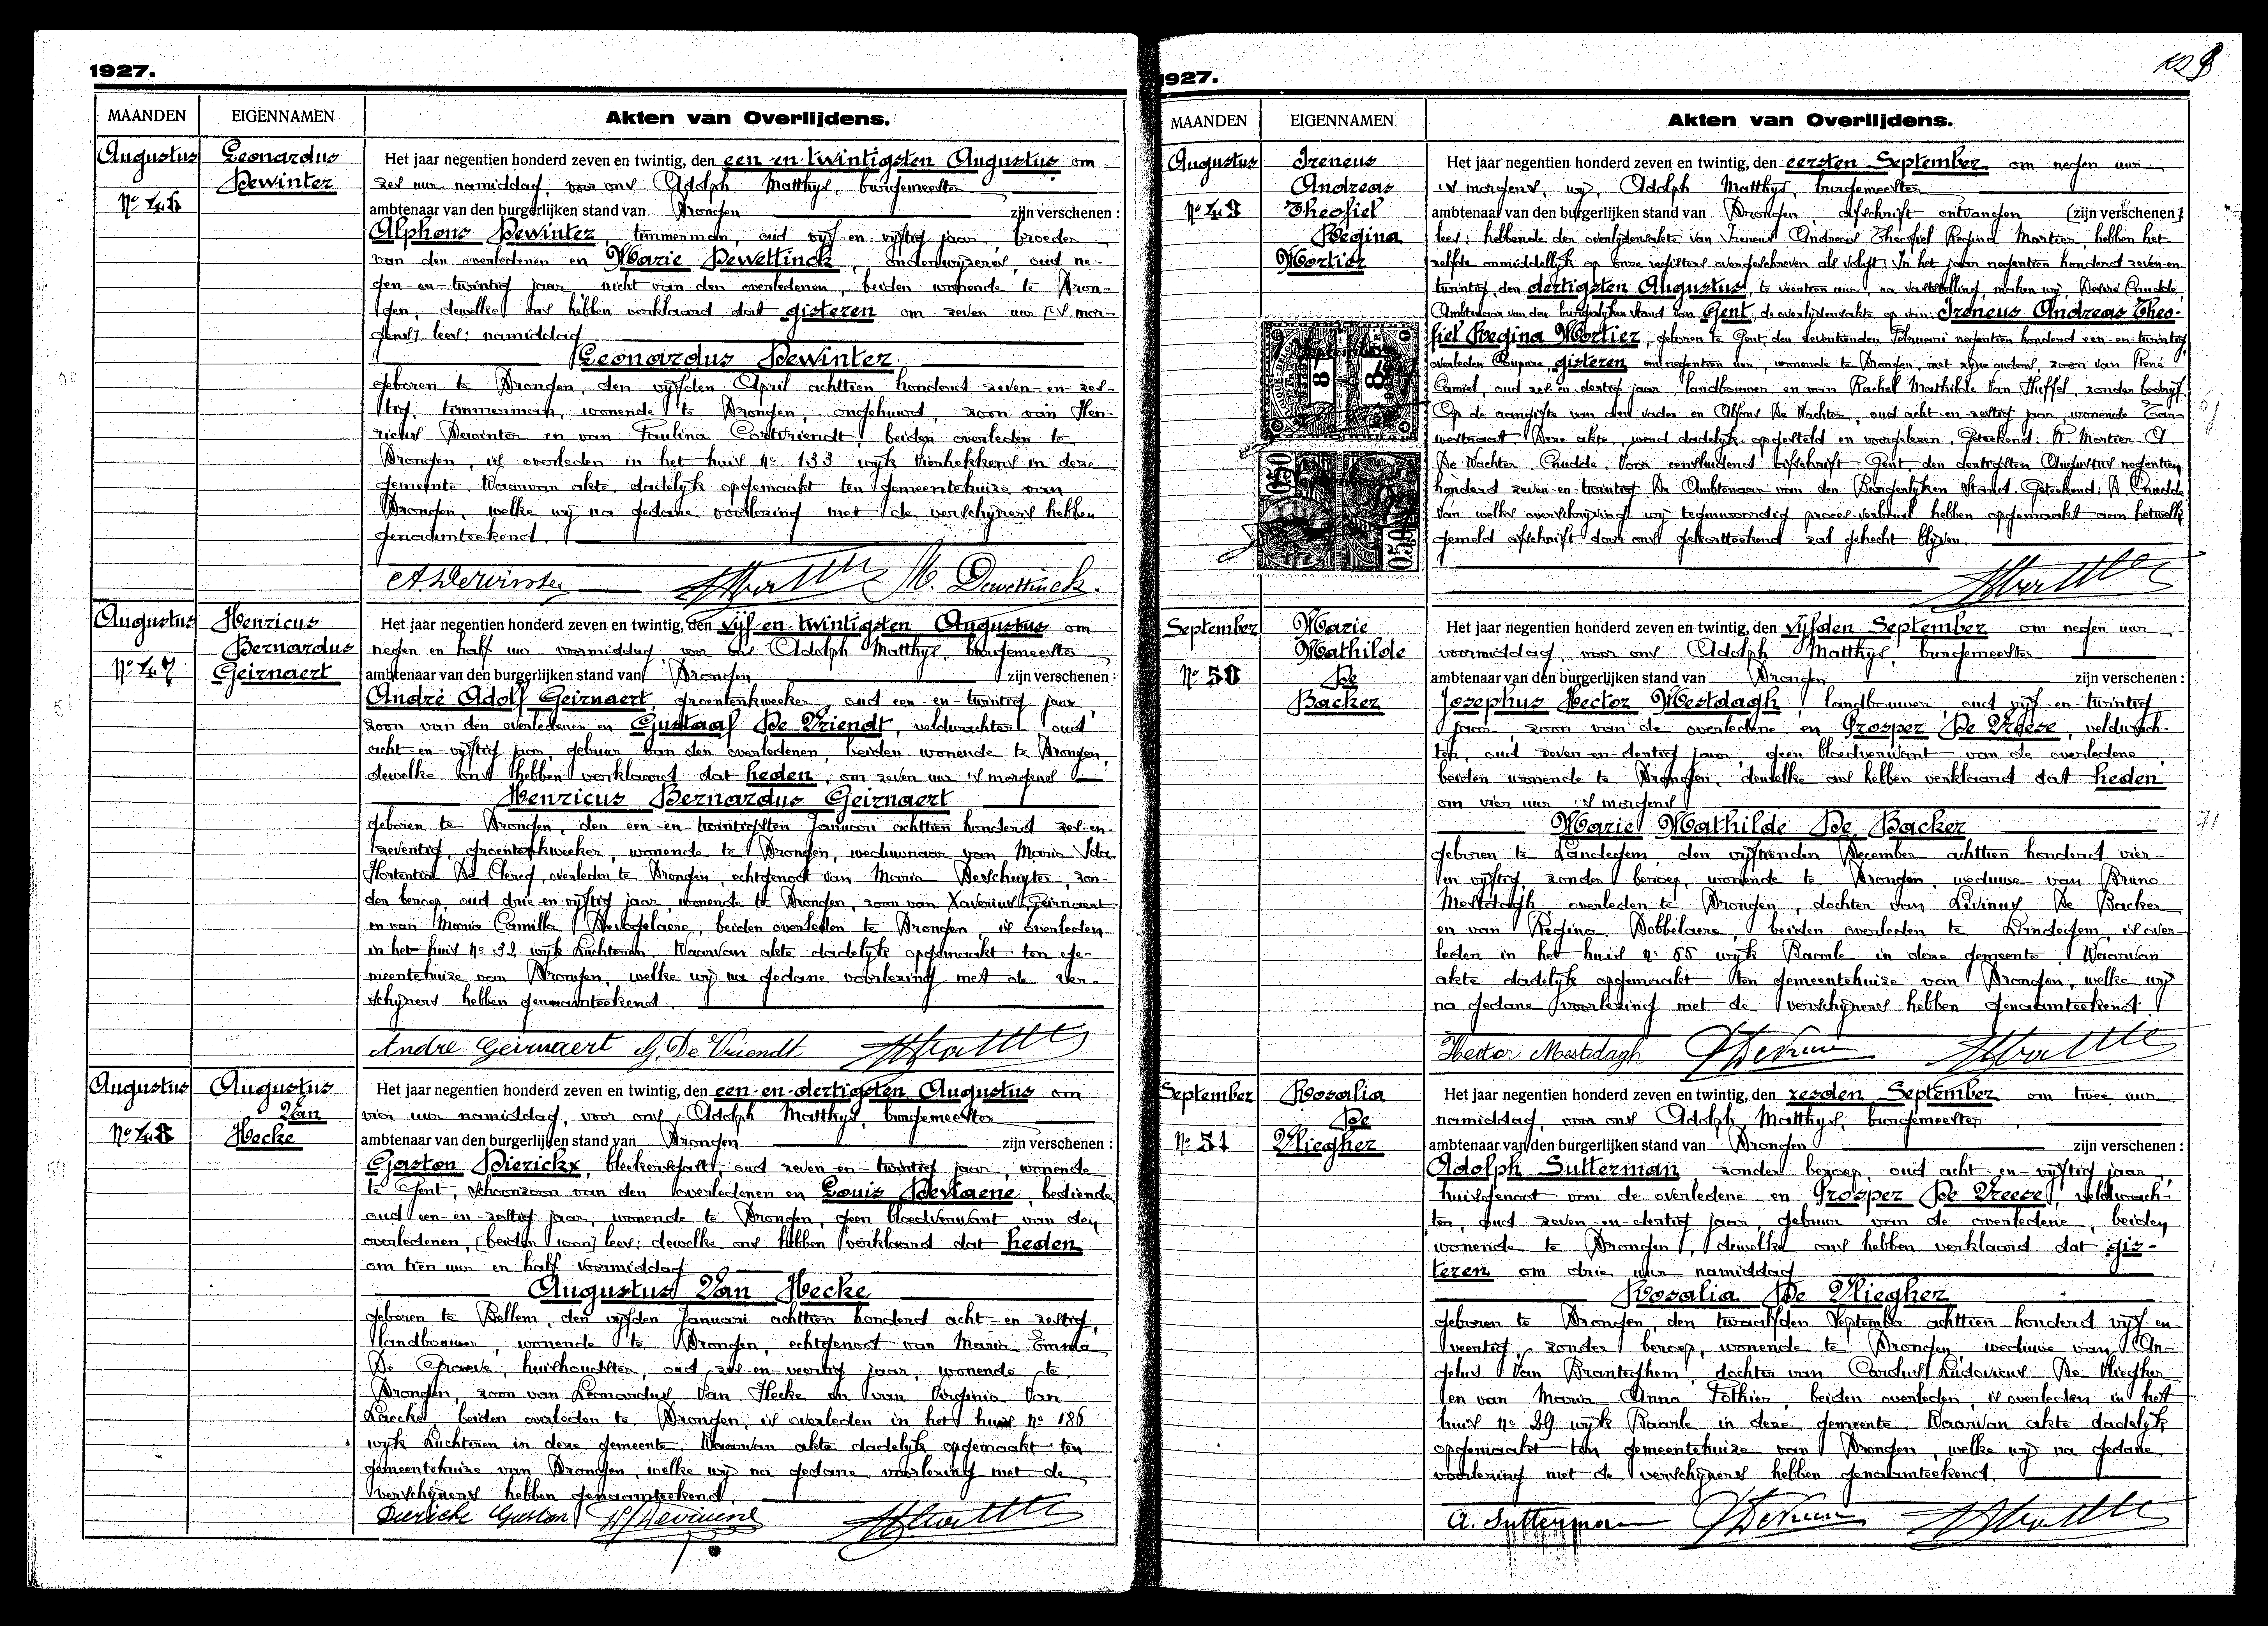 1927.
MAANDEN EIGENNAMEN Akten van Overlijdens.
Augustus
No 46
Leonardus
Dewinter
Het jaar negentien honderd zeven en twintig, den een-en-twintigsten Augustus om
zes uur namiddag, voor ons Adolph Matthys, burgemeester
ambtenaar van den burgerlijken stand van Drongen zijn verschenen :
Alphons Dewinter, timmerman, oud vijf-en-vijftig jaar, broeder
van den overledenen en Marie Dewettinck, onderwijzeres, oud ne-
gen-en-twintig jaar, nicht van den overledenen, beiden wonende te Dron-
gen, dewelke ons hebben verklaard dat gisteren om zeven uur ['s mor-
gens] lees: namiddag
Leonardus Dewinter
geboren te Drongen, den vijfden April achttien honderd zeven-en-zes-
tig, timmerman, wonende te Drongen, ongehuwd, zoon van Hen-
ricus Dewinter en van Paulina Cortvriendt, beiden overleden te
Drongen, is overleden in het huis no 133 wijk Vierhekkens in deze
gemeente. Waarvan akte dadelijk opgemaakt ten gemeentehuize van
Drongen, welke wij na gedane voorlezing met de verschijners hebben
genaamteekend.
A Dewinter M. Dewettinck.
Augustus
No 47
Henricus
Bernardus
Geirnaert
Het jaar negentien honderd zeven en twintig, den vijf-en-twintigsten Augustus om
negen en half uur voormiddag, voor ons Adolph Matthys, burgemeester
ambtenaar van den burgerlijken stand van Drongen zijn verschenen :
André Adolf Geirnaert, groentenkweeker, oud een-en-twintig jaar,
zoon van den overledenen en Gustaaf De Vriendt, veldwachter, oud
acht-en-vijftig jaar, gebuur van den overledenen, beiden wonende te Drongen,
dewelke ons hebben verklaard dat heden, om zeven uur 's morgens
Henricus Bernardus Geirnaert
geboren te Drongen, den een-en-twintigsten Januari achttien honderd zes-en-
zeventig, groentenkweeker, wonende te Drongen, weduwnaar van Maria Ida
Hortentia De Clercq, overleden te Drongen, echtgenoot van Maria Deschuyter, zon-
der beroep, oud drie-en-vijftig jaar, wonende te Drongen, zoon van Xaverius Geirnaert
en van Maria Camilla Devogelaere, beiden overleden te Drongen, is overleden
in het huis no 32 wijk Luchteren. Waarvan akte dadelijk opgemaakt ten ge-
meentehuize van Drongen, welke wij na gedane voorlezing met de ver-
schijners hebben genaamteekend.
André Geirnaert G. De Vriendt
Augustus
No 48
Augustus
Van
Hecke
Het jaar negentien honderd zeven en twintig, den een-en-dertigsten Augustus om
vier uur namiddag, voor ons Adolph Matthys, burgemeester
ambtenaar van den burgerlijken stand van Drongen zijn verschenen :
Gaston Dierickx, bleekersgast, oud zeven-en-twintig jaar, wonende
te Gent, schoonzoon van den overledenen en Louis bediende,
oud een-en-zestig jaar, wonende te Drongen, geen bloedverwant van den
overledenen, [beiden won] lees: dewelke ons hebben verklaard dat heden
om tien uur en half voormiddag
Augustus Van Hecke
geboren te Bellem, den vijfden Januari achttien honderd acht-en-zestig,
landbouwer, wonende te Drongen, echtgenoot van Maria Emma
De Graeve, huishoudster, oud zes-en-veertig jaar, wonende te
Drongen, zoon van Leonardus Van Hecke en van Virginia Van
Laecke, beiden overleden te Drongen, is overleden in het huis no 186
wijk Luchteren in deze gemeente. Waarvan akte dadelijk opgemaakt ten
gemeentehuize van Drongen, welke wij na gedane voorlezing met de
verschijners hebben genaamteekend.
Dierickx Gaston
1927.
MAANDEN EIGENNAMEN Akten van Overlijdens.
Augustus
No 49
Ireneus
Andreas
Theofiel
Regina
Mortier
Het jaar negentien honderd zeven en twintig, den eersten September om negen uur
's morgens, wij, Adolph Matthys, burgemeester
ambtenaar van den burgerlijken stand van Drongen, afschrift ontvangen [zijn verschenen]
lees: hebbende der overlijdensakte van Ireneus Andreas Theofiel Regina Mortier, hebben het
zelfde onmiddellijk op onze registers overgeschreven als volgt: In het jaar negentien honderd zeven-en-
twintig, den dertigsten Augustus, te veertien uur, na vaststelling, maken wij, Désiré Cnudde,
Ambtenaar van den burgerlijken stand van Gent, de overlijdensakte op van: Ireneus Andreas Theo-
fiel Regina Mortier, geboren te Gent, den zeventienden Februari negentien honderd een-en-twintig,
overleden Coupure, gisteren om negentien uur, wonende te Drongen, met zijne ouders, zoon van René
Camiel, oud zes-en-dertig jaar, landbouwer en van Rachel Mathilde Van Huffel, zonder bedrijf.
Op de aangifte van den vader en Alfons De Wachter, oud acht-en-zestig jaar, wonende
Deze akte, werd dadelijk opgesteld en voorgelezen. Geteekend: R. Mortier. A.
De Wachter. Cnudde. Voor eensluidend afschrift Gent, den dertigsten Augustus negentien
honderd zeven-en-twintig. De Ambtenaar van den Burgerlijken Stand. Geteekend: D. Cnudde.
Van welke overschrijving wij tegenwoordig proces-verbaal hebben opgemaakt aan hetwelk
gemeld afschrift door ons gekortteekend zal gehecht blijven.
8 8
0.50 0.50
September
No 50
Marie
Mathilde
De
Backer
Het jaar negentien honderd zeven en twintig, den vijfden September om negen uur
voormiddag, voor ons Adolph Matthys, burgemeester
ambtenaar van den burgerlijken stand van Drongen zijn verschenen :
Josephus Hector Mestdagh, landbouwer, oud vijf-en-twintig
jaar, zoon van de overledene en Prosper De Vreese, veldwach-
ter, oud zeven-en-dertig jaar, geen bloedverwant van de overledene,
beiden wonende te Drongen, dewelke ons hebben verklaard dat heden
om vier uur 's morgens
Marie Mathilde De Backer
geboren te Landegem, den vijftienden December achttien honderd vier-
en vijftig, zonder beroep, wonende te Drongen, weduwe van Bruno
Mestdagh, overleden te Drongen, dochter van Livinus De Backer
en van Regina Dobbelaere, beiden overleden te Landegem, is over-
leden in het huis no 55 wijk Baarle in deze gemeente. Waarvan
akte dadelijk opgemaakt ten gemeentehuize van Drongen, welke wij
na gedane voorlezing met de verschijners hebben genaamteekend.
Hector Mestdagh
September
No 51
Rosalia
De
Vliegher
Het jaar negentien honderd zeven en twintig, den zesden September om twee uur
namiddag, voor ons Adolph Matthys, burgemeester
ambtenaar van den burgerlijken stand van Drongen zijn verschenen :
Adolph Sutterman zonder beroep, oud acht-en-vijftig jaar,
huisgenoot van de overledene en Prosper De Vreese, veldwach-
ter, oud zeven-en-dertig jaar, gebuur van de overledene, beiden
wonende te Drongen, dewelke ons hebben verklaard dat gis-
teren om drie uur namiddag
Rosalia De Vliegher
geboren te Drongen, den twaalfden September achttien honderd vijf-en-
veertig, zonder beroep, wonende te Drongen, weduwe van An-
gelus Van Branteghem, dochter van Carolus Ludovicus De Vliegher
en van Maria Anna Pothier, beiden overleden, is overleden in het
huis no 29 wijk Baarle in deze gemeente. Waarvan akte dadelijk
opgemaakt ten gemeentehuize van Drongen, welke wij na gedane
voorlezing met de verschijners hebben genaamteekend.
A. Sutterman